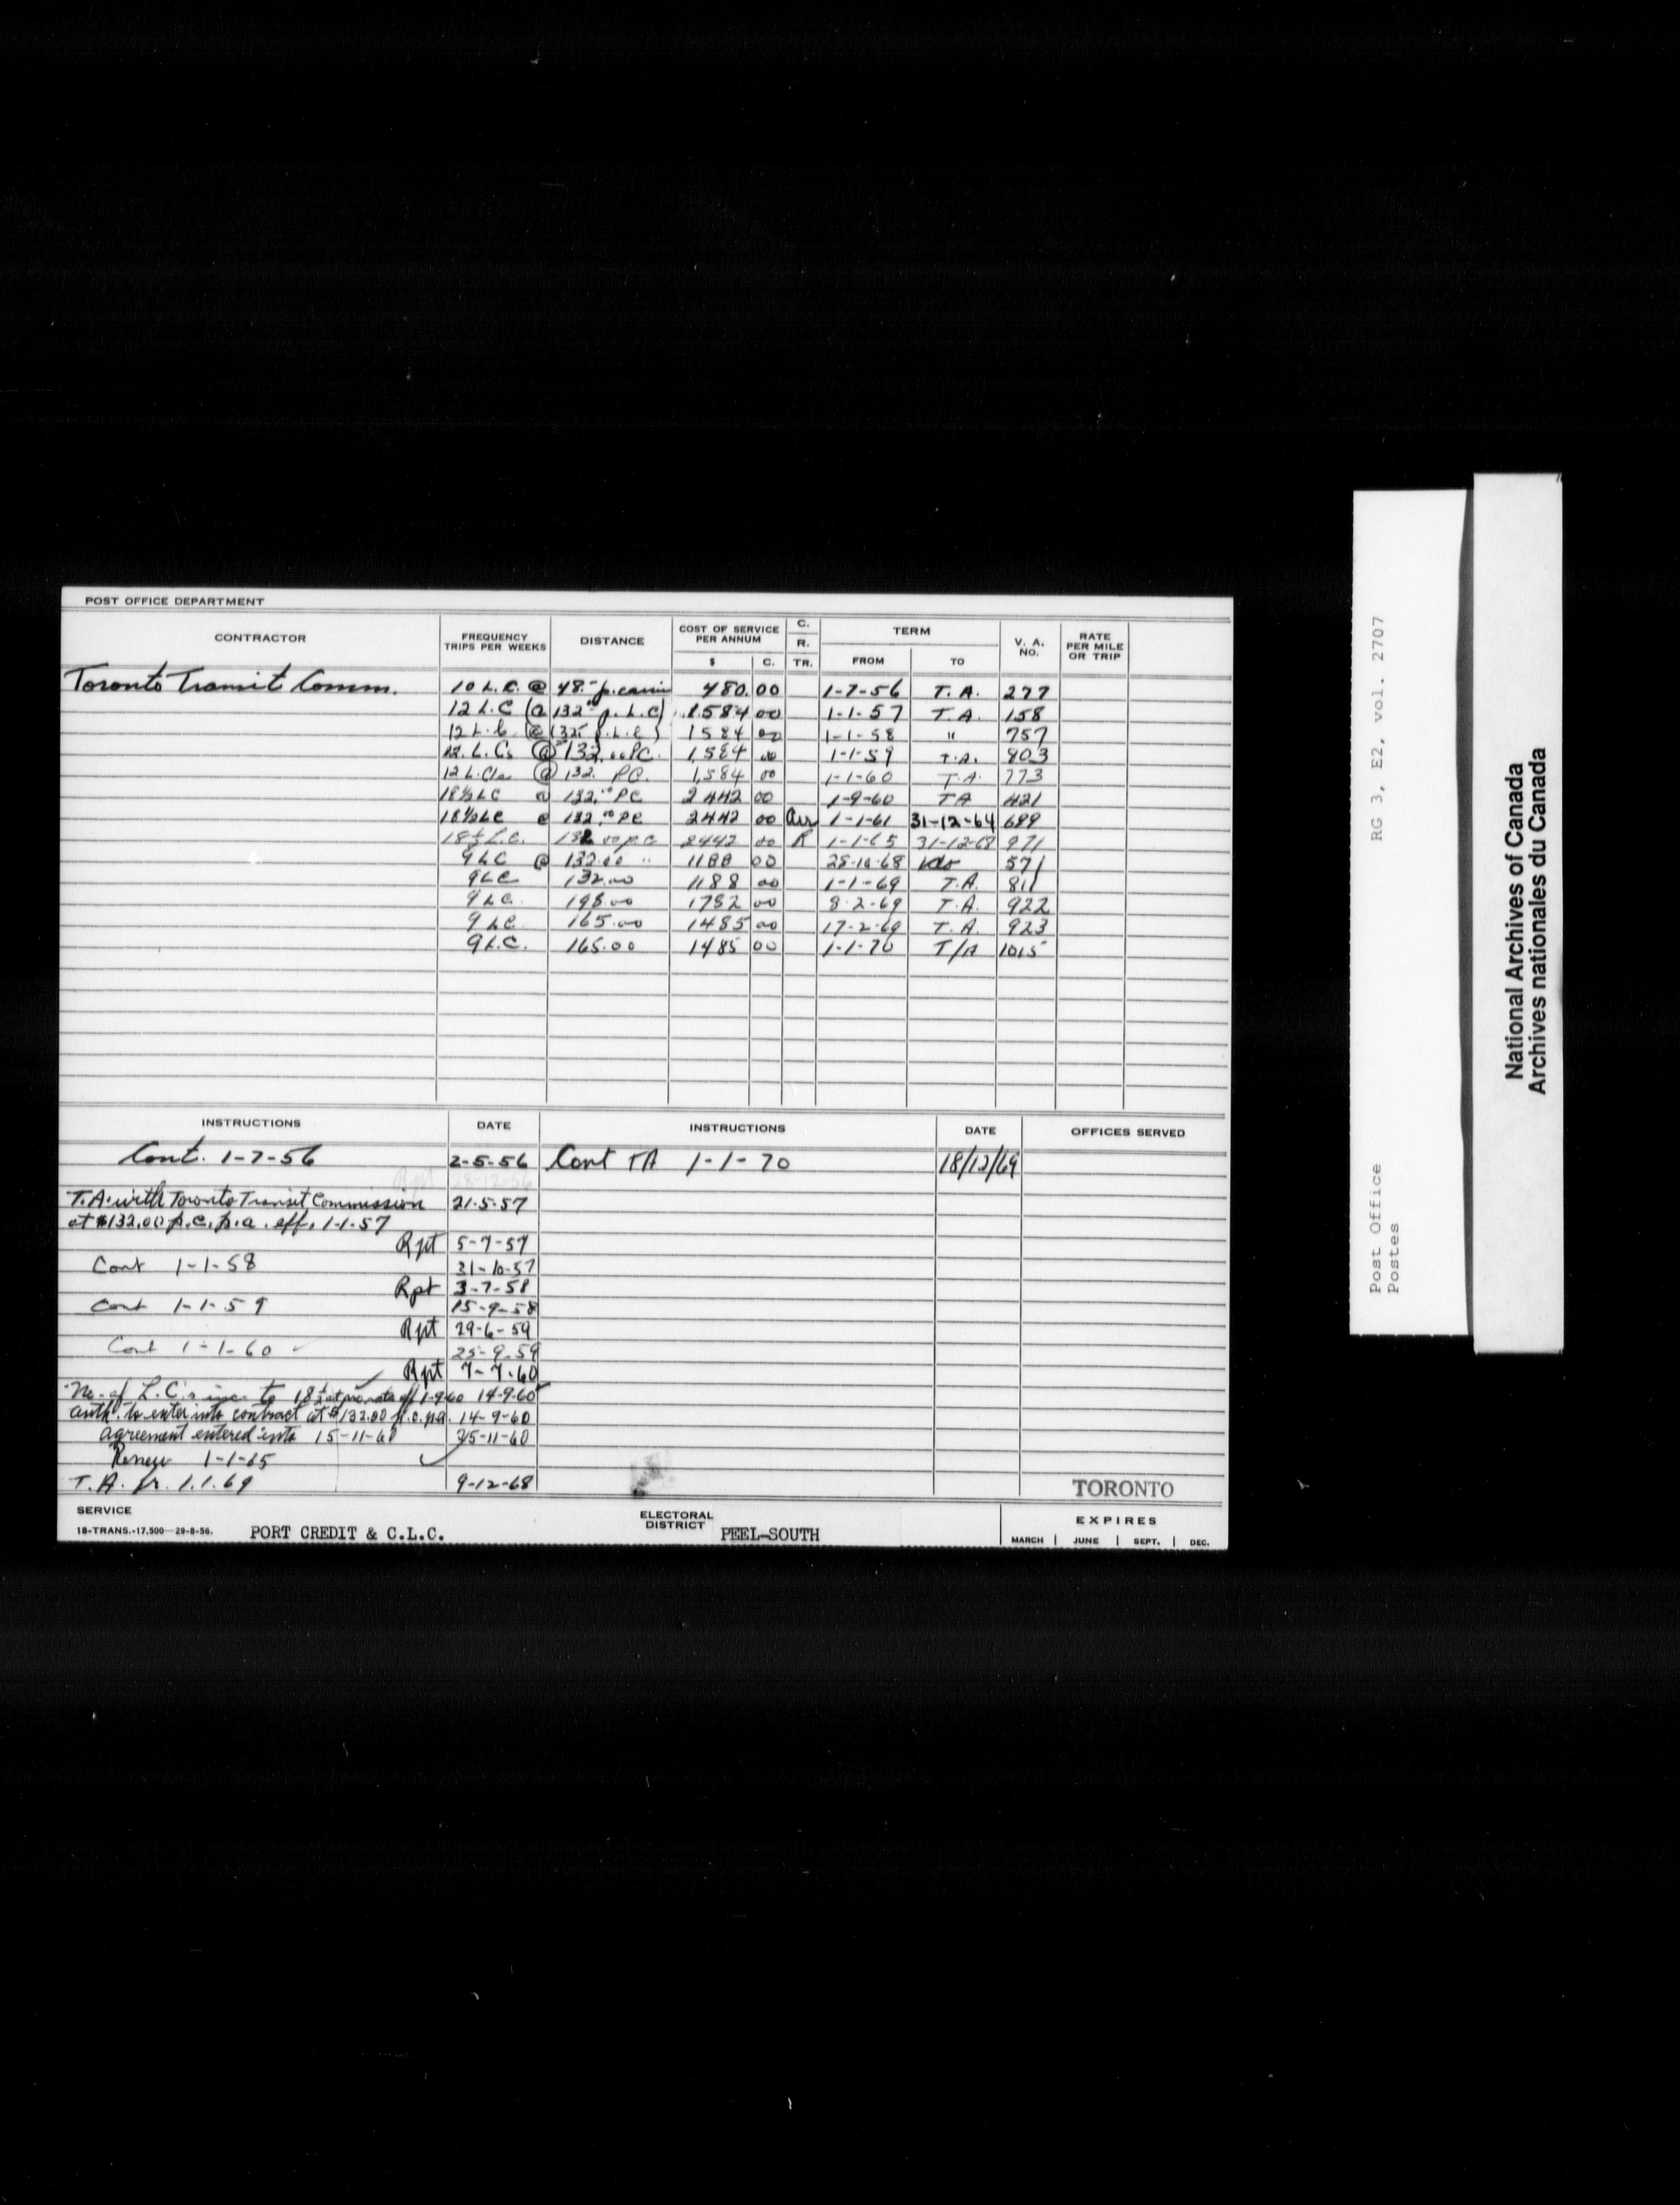 POST OFFICE DEPARTMENT
CONTRACTOR FREQUENCY TRIPS PER WEEKS DISTANCE COST OF SERVICE PER ANNUM $ C. C. R. TR. TERM FROM TO V. A. NO. RATE PER MILE OR TRIP
Toronto Transit Comm. 10 L.C. @ 48.- p. carrier 480.00 1-7-56 T.A. 277
12 L.C (@ 132.00 p. L.C) 1584 00 1-1-57 T.A. 158
12 L.C. (@ 132 p.L.C) 1584 00 1-1-58 " 757
12. L.Cs @ 132.00 P.C. 1,584 00 1-1-59 T.A. 803
12 L.C/s @ 132. P.C. 1,584 00 1-1-60 T.A. 773
18½ LC @ 132.00 PC 2442 00 1-9-60 TA 421
18½ LC @ 132.00 PC 2442 00 1-1-61 31-12-64 699
18½ L.C. 132.00 p.c 2442 00 R 1-1-65 31-12-68 971
9 LC @ 132.00 " 1188 00 25-10-68 do 571
9 LC 132.00 1188 00 1-1-69 T.A. 811
9 L.C. 198.00 1782 00 8-2-69 T.A. 922
9 LC 165.00 1485 00 17-2-69 T.A. 923
9 L.C. 165.00 1485 00 1-1-70 T/A 1015
INSTRUCTIONS DATE INSTRUCTIONS DATE OFFICES SERVED
Cont. 1-7-56 2-5-56 Cont TA 1-1-70 18/12/69
Rpt 28-12-56
T.A. with Toronto Transit Commission 21-5-57
at $132.00 p.c. p.a. eff. 1-1-57
Rpt 5-7-57
Cont 1-1-58 31-10-57
Rpt 3-7-58
Cont 1-1-59 15-9-58
Rpt 29-6-59
Cont 1-1-60 25-9-59
Rpt 7-7-60
No. of L.C.s inc. to 18½ at pro rata eff 1-9-60 14-9-60
auth. to enter into contract at $132.00 p.c. p.a. 14-9-60
agreement entered into 15-11-60 25-11-60
Renew 1-1-65
T.A. fr. 1.1.69 9-12-68
TORONTO
SERVICE
18-TRANS.-17,500—29-8-56. PORT CREDIT & C.L.C. ELECTORAL DISTRICT PEEL-SOUTH EXPIRES
MARCH | JUNE | SEPT. | DEC.
Post Office RG 3, E2, vol. 2707
Postes
National Archives of Canada
Archives nationales du Canada